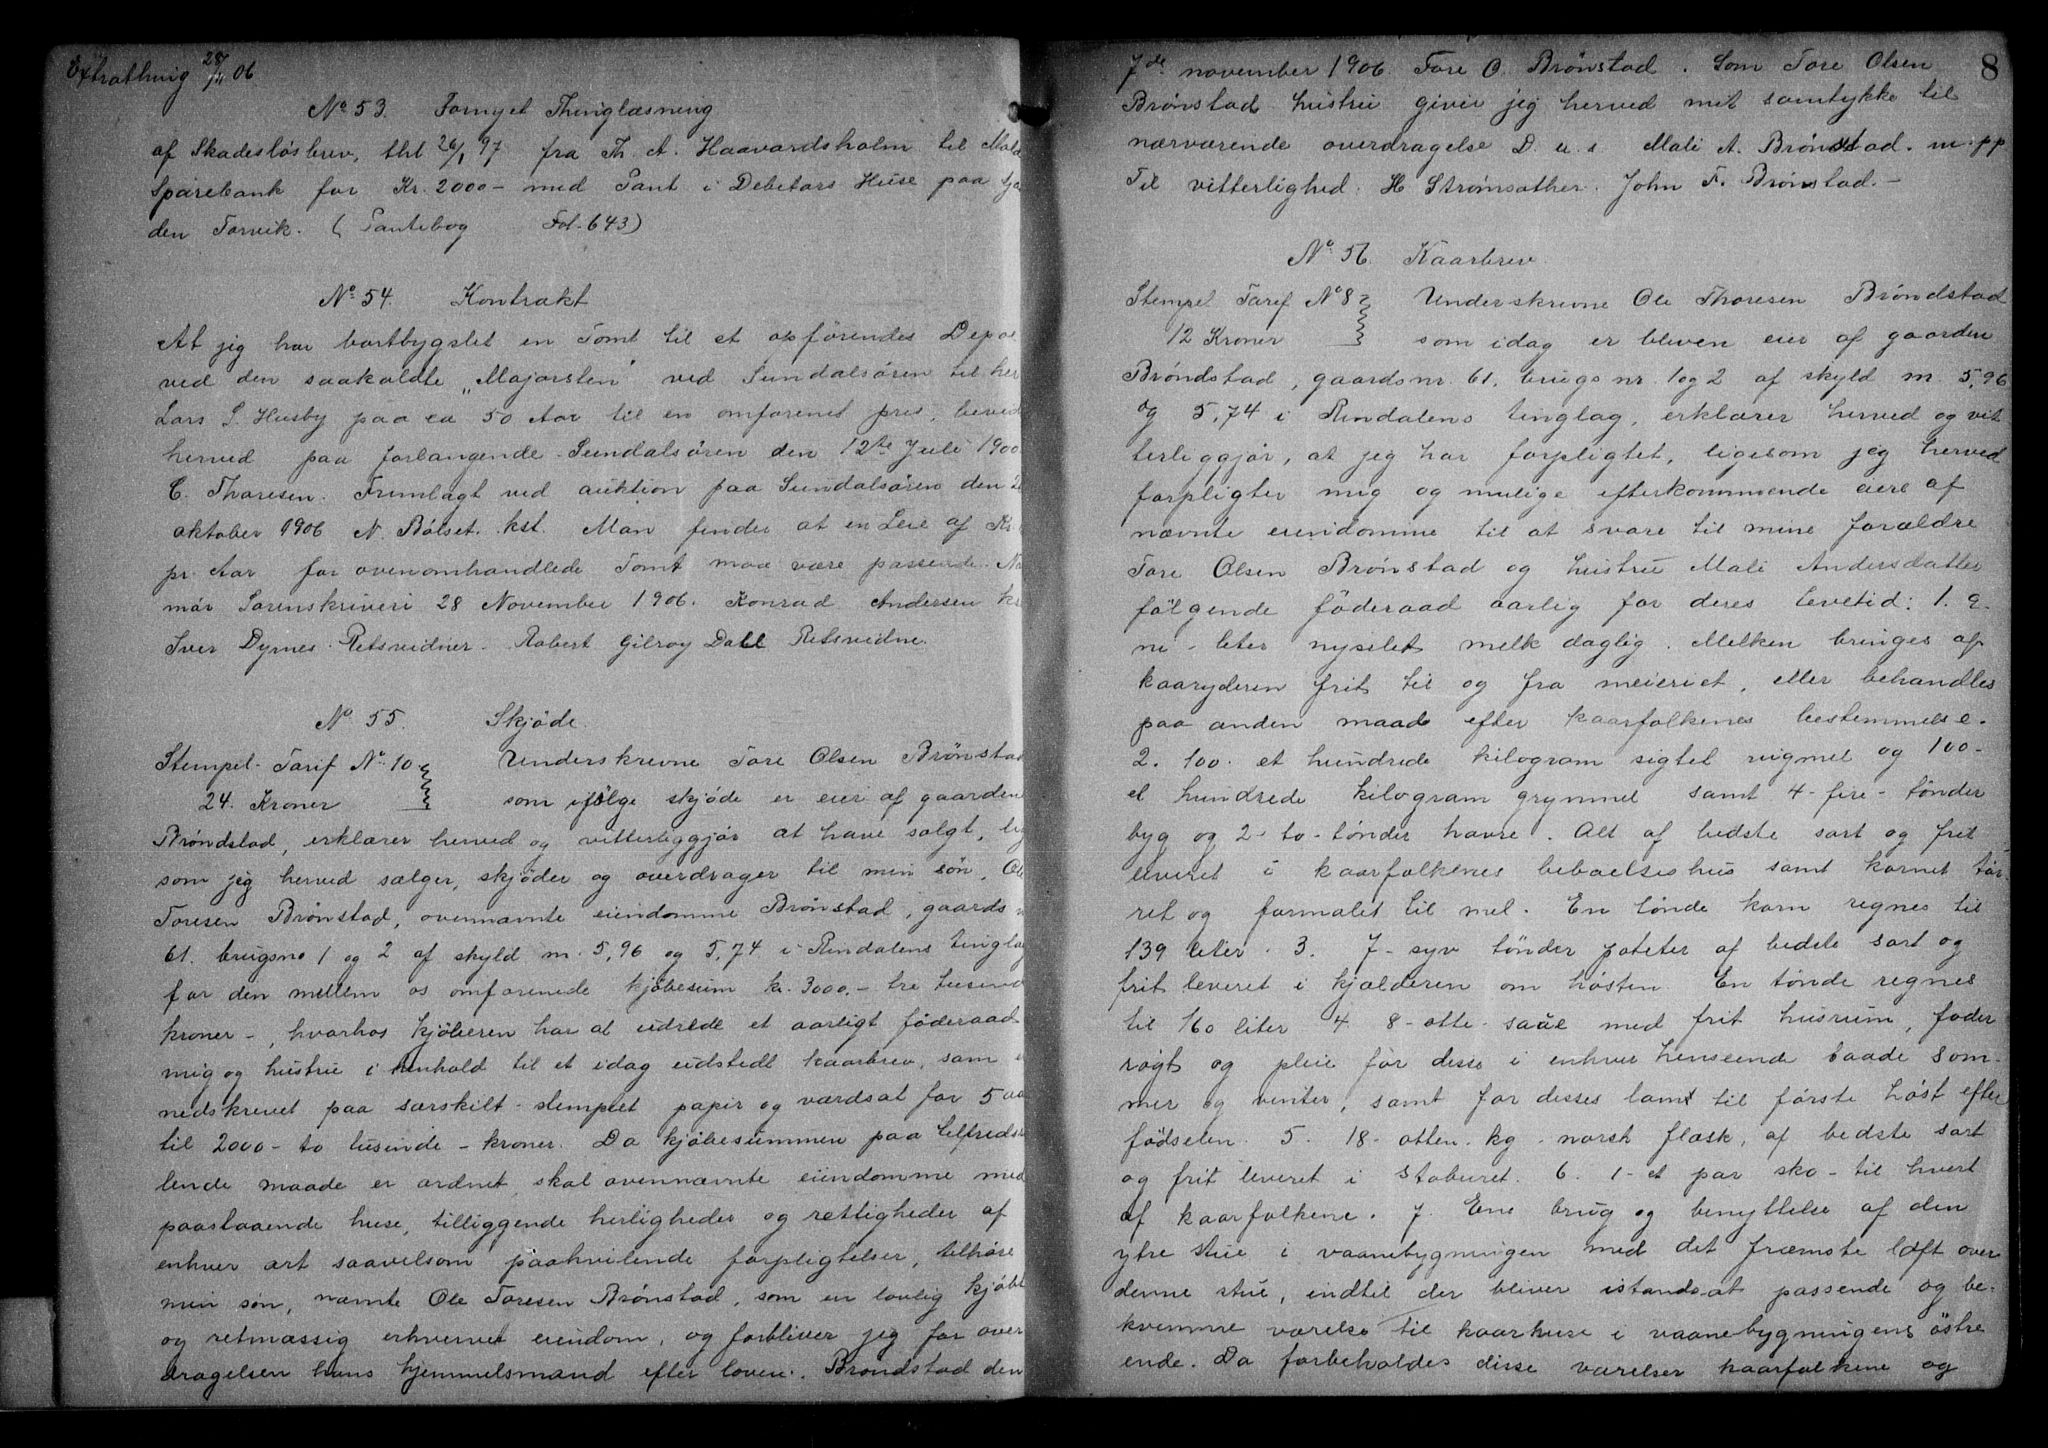 Extrathing 28/11 06
No 53. Fornyet Thinglæsning
af Skadesløsbrev, thl 26/1 97 fra Th. A. Haavardsholm til Molde
Sparebank for Kr. 2000 - med Pant i Debitors Huse paa
den Torvik. (Pantebog Fol. 643)
No 54. Kontrakt
At jeg har bortbygslet en Tomt til et opførendes Depot
ved den saakaldte "Majorsten" ved Sundalsøren til her
Lars S. Husby paa ca 50 Aar til en omforenet pris, bevid
herved paa forlangende. Sundalsøren den 12te Juli 1900.
C. Thoresen. Fremlagt ved auktion paa Sundalsøren den 2
oktober 1906 N. Bølset. kst. Man finder at en Leie af Kr.
pr. Aar for ovenomhandlede Tomt maa være passende. No
mør Sorenskriveri 28 November 1906. Konrad Andersen
Iver Dyrnes. Retsvidner. Robert Gilroy Dall Retsvidne.
No 55. Skjøde.
Stempel-Tarif No. 10. Underskrevne Tore Olsen Brønstad
24. Kroner som ifølge skjøde er eier af gaarden
Brøndstad, erklærer herved og vitterliggjør at have solgt, lig
som jeg herved sælger, skjøder og overdrager til min søn, Ole
Toresen Brønstad, ovennævnte eiendomme Brønstad, gaards n
61. brugsno 1 og 2 af skyld m. 5,96 og 5,74 i Rindalens tinglag
for den mellem os omforenede kjøbesum kr. 3000.- tre tusend
kroner -, hvorhos kjøberen har at udrede et aarligt føderaad
mig og hustru i henhold til et idag udstedt kaarbrev, som e
nedskrevet paa særskilt stemplet papir og værdsat for 5 aa
til 2000 - to tusinde - kroner. Da kjøbesummen paa tilfredsst
lende maade er ordnet, skal ovennævnte eiendomme med
paastaaende huse, tilliggende herligheder og rettigheder af
enhver art saavelsom paahvilende forpligtelser, tilhøre
min søn, nævnte Ole Toresen Brønstad, som en lovlig kjøbt
og retmæssig erhvervet eiendom, og forbliver jeg for over
dragelsen hans hjemmelsmand efter loven. Brøndstad den
8
7de november 1906. Tore O. Brønstad. Som Tore Olsen
Brønstad hustru giver jeg herved mit samtykke til
nærværende overdragelse D. u. s. Mali A. Brønstad. m. p p
Til vitterlighed: H Strømsæther. John F. Brønstad.-
No 56. Kaarbrev.
Stempel Tarif No 8 Underskrevne Ole Thoresen Brøndstad
12 Kroner som idag er bleven eier af gaarden
Brøndstad, gaardsnr. 61, brugsnr. 1 og 2 af skyld m. 5,96
og 5,74 i Rindalens tinglag, erklærer herved og vit
terliggjør, at jeg har forpligtet, ligesom jeg herved
forpligter mig og mulige efterkommende eiere af
nævnte eiendomme til at svare til mine forældre
Tore Olsen Brønstad og hustru Mali Andersdatter
følgende føderaad aarlig for deres levetid: 1. 9-
ni - liter nysilet melk daglig. Melken bringes af
kaaryderen frit til og fra meieriet, eller behandles
paa anden maade efter kaarfolkenes bestemmelse.
2. 100. et hundrede kilogram sigtet rugmel og 100-
et hundrede kilogram grynmel samt 4 - fire - tønder
byg og 2 - to - tønder havre. Alt af bedste sort og frit
leveret i kaarfolkenes beboelseshus samt kornet tør
ret og formalet til mel. En tønde korn regnes til
139 liter. 3. 7 - syv tønder poteter af bedste sort og
frit leveret i kjælderen om høsten. En tønde regnes
til 160 liter 4 8 - otte - saue med frit husrum, foder
røgt og pleie før disse i enhver henseende baade som-
mer og vinter, samt for disses lam til første høst efter
fødselen. 5. 18 - atten - kg - norsk flæsk, af bedste sort
og frit leveret i staburet. 6. 1 - et par sko - til hvert
af kaarfolkene. 7. Ene brug og benyttelse af den
ytre stue i vaanebygningen med det fræmste loft over
denne stue, indtil der bliver istandsat passende og be-
kvemme værelse til kaarhuse i vaanebygningens østre
ende. Da forbeholdes disse værelser kaarfolkene og